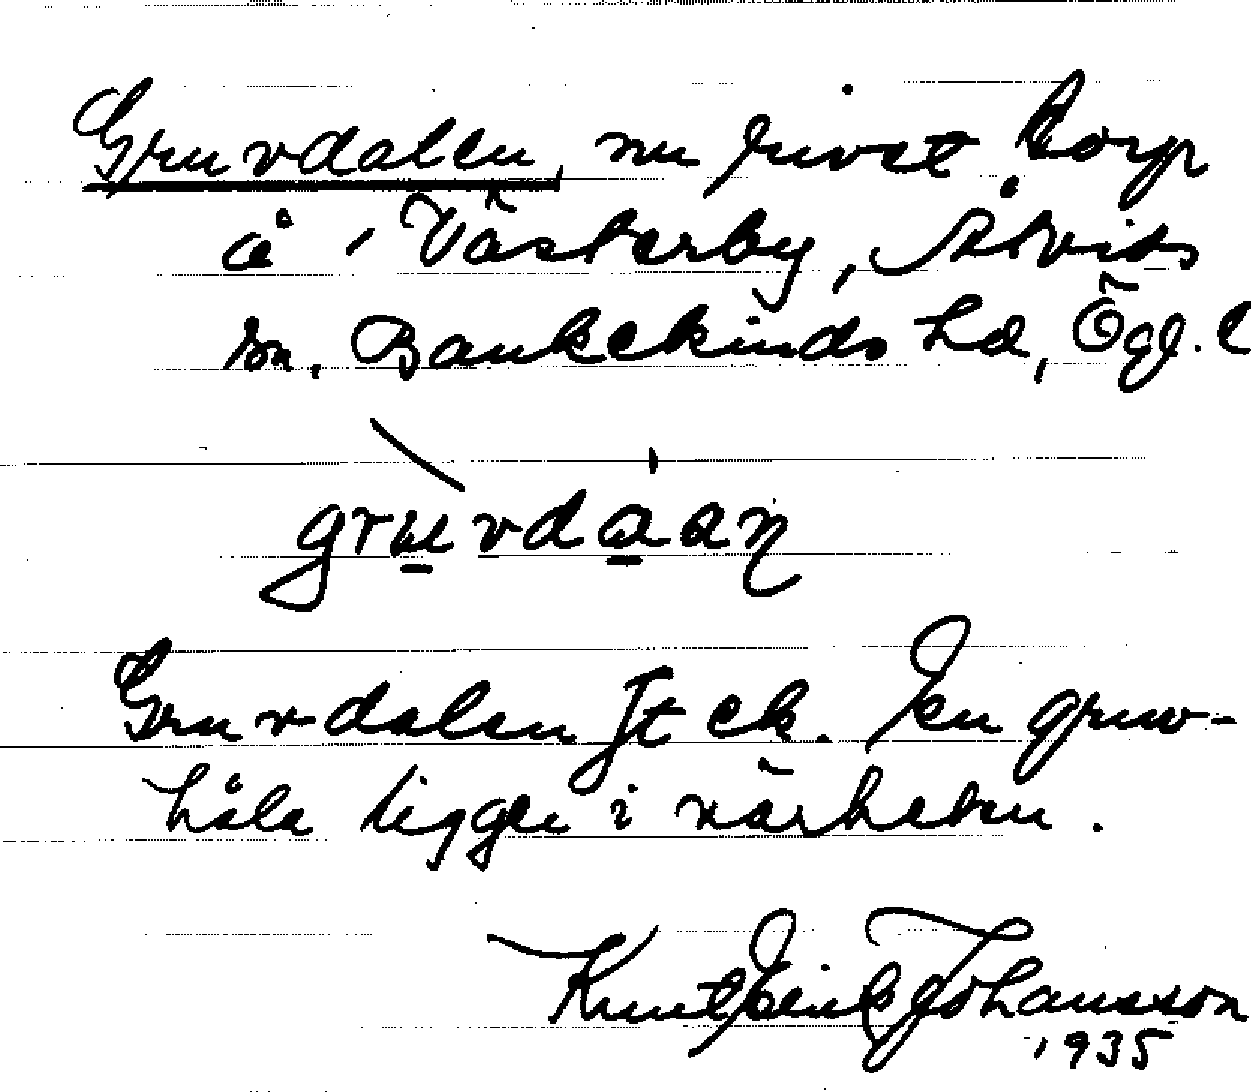 Gruvdalen, nu rivet torp
å 1 Västerby, Åtvids
sn, Bankekinds hd, Ögl. l
gruvdaan
Gruvdalen Jt ek. En gruv-
håla ligger i närheten.
Knut Erik Johansson
1935